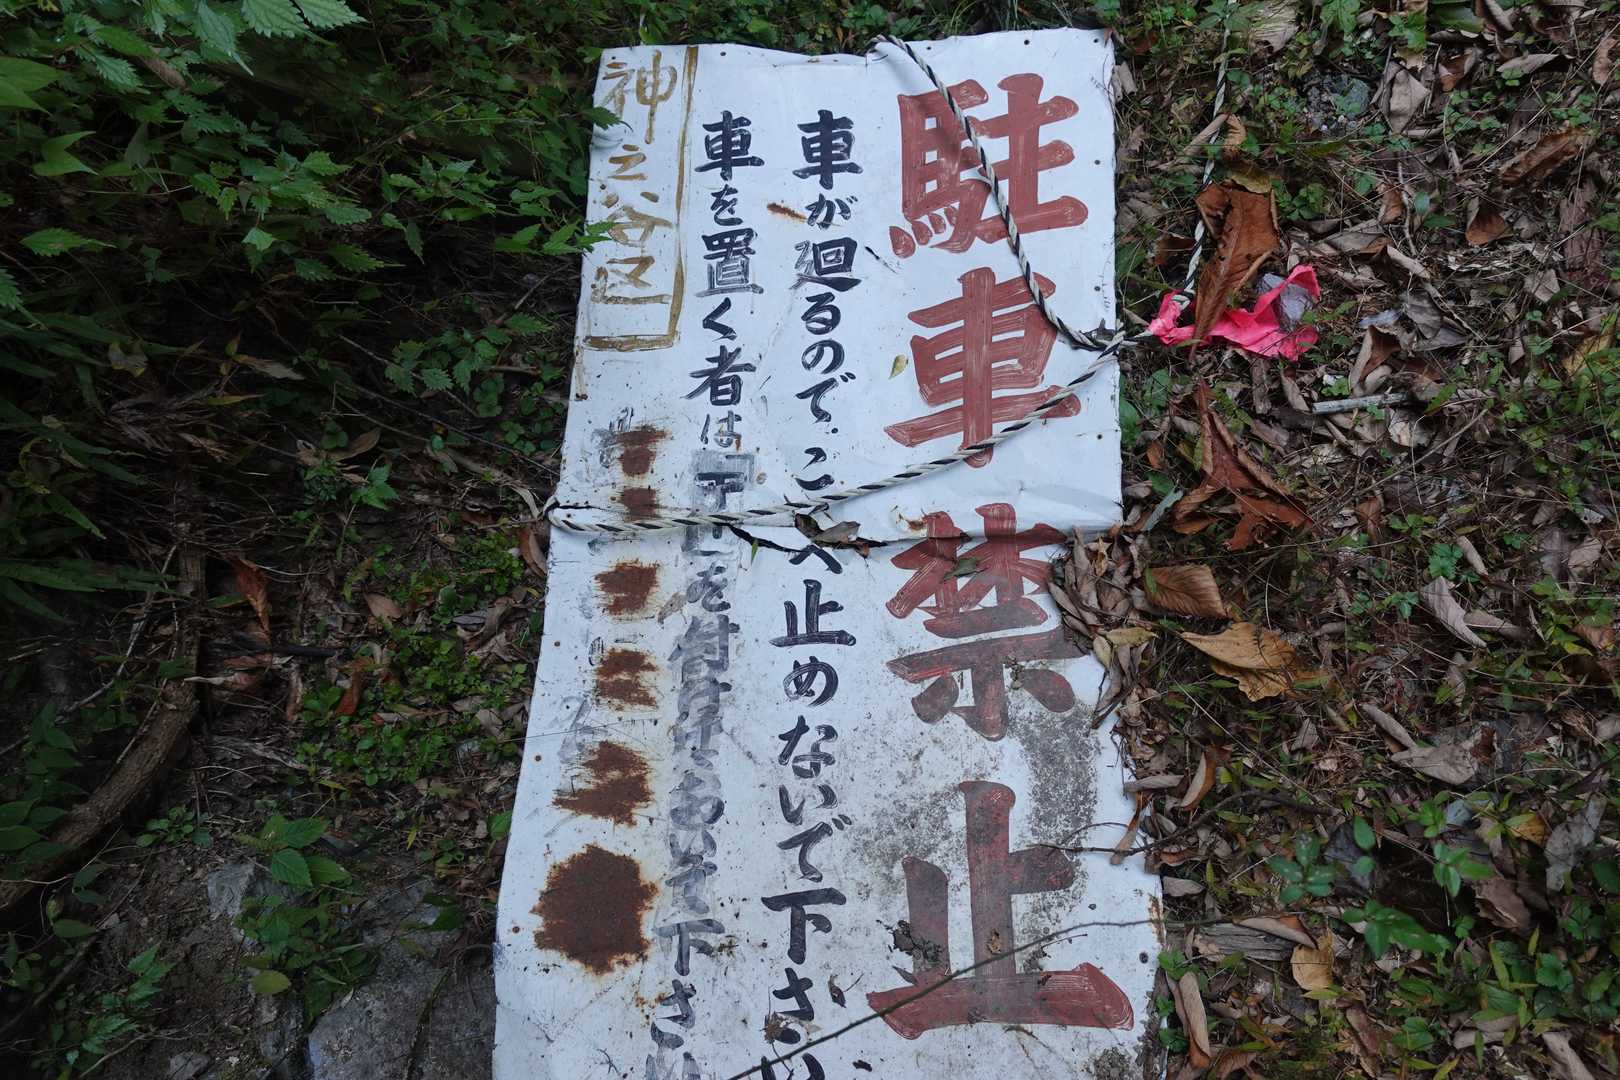 駐車禁止
車が廻るので、こへ止めないで下さい
車を置く者は下を付けておいて下さい
神之谷区